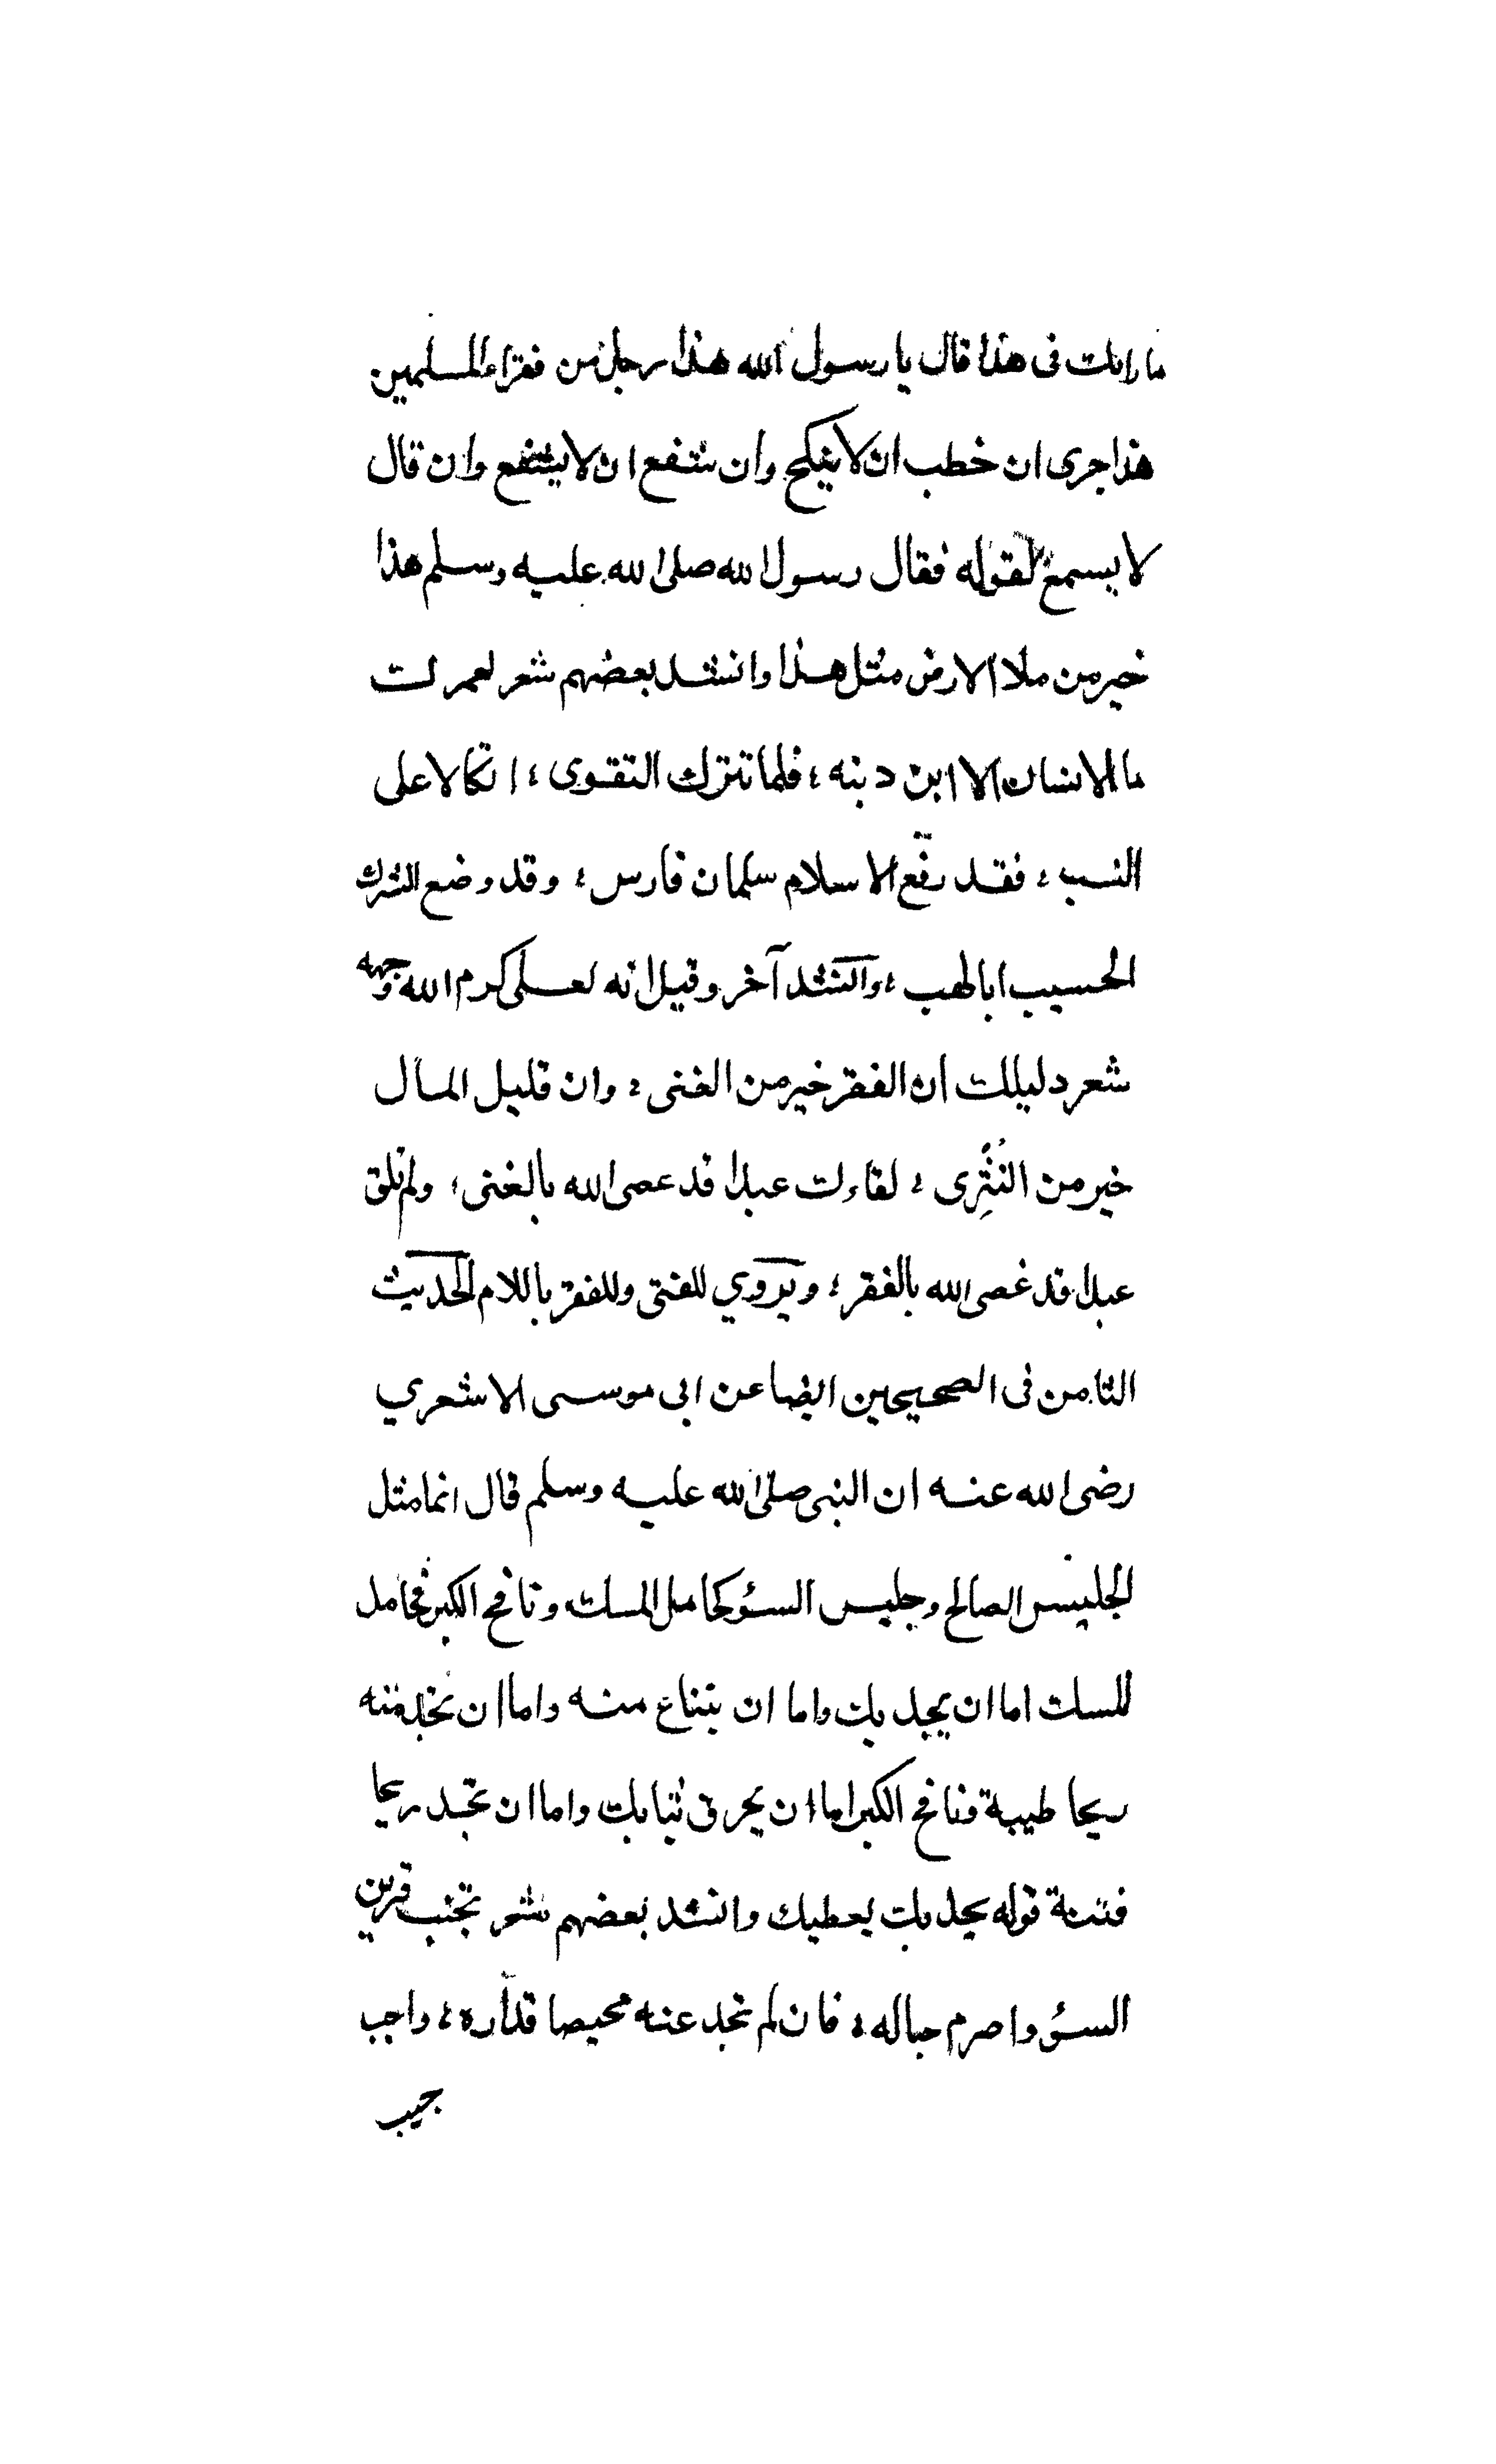 ما رايك فى هذا قال يا رسول الله هذا رجل من فقراء المسلمين
هذا جرى ان خطب ان لا ينكح وان شفع ان لا يشفع وان قال
لا يسمع لقوله فقال رسول الله صلى الله عليه وسلم هذا
خير من ملا الارض مثل هذا وانشد بعضهم شعر لعمرك
ما الانسان الا ابن دينه ؛ فلما تترك التقوى ؛ اتكالا على
النسب ؛ فقد رفع الاسلام سلمان فارس ؛ وقد وضع الشرك
الحسيب ابا لهب ؛ وانشد آخر وقيل انه لعلى كرم الله وجهه
شعر دليلك ان الفقر خير من الغنى ؛ وان قليل المال
خير من المُثْرِى ؛ لقاءك عبدا قد عصى الله بالغنى ؛ ولم تلق
عبدا قد عصى الله بالفقر ؛ ويروي للغنى وللفقر باللام الحديث
الثامن فى الصحيحين ايضا عن ابى موسى الاشعري
رضى الله عنه ان النبى صلى الله عليه وسلم قال انما مثل
الجليس الصالح وجليس السؤ كحامل المسك ونافخ الكير فحامل
المسك اما ان يجديك واما ان تبتاع منه واما ان تجد منه
ريحا طيبة ونافخ الكير اما ان يحرق ثيابك واما ان تجد ريحا
منتنة قوله يجديك يعطيك وانشد بعضهم شعر تجنب قرين
السؤ واصرم حباله ؛ فان لم تجد عنه محيصا فداره ؛ واحب
حبيب